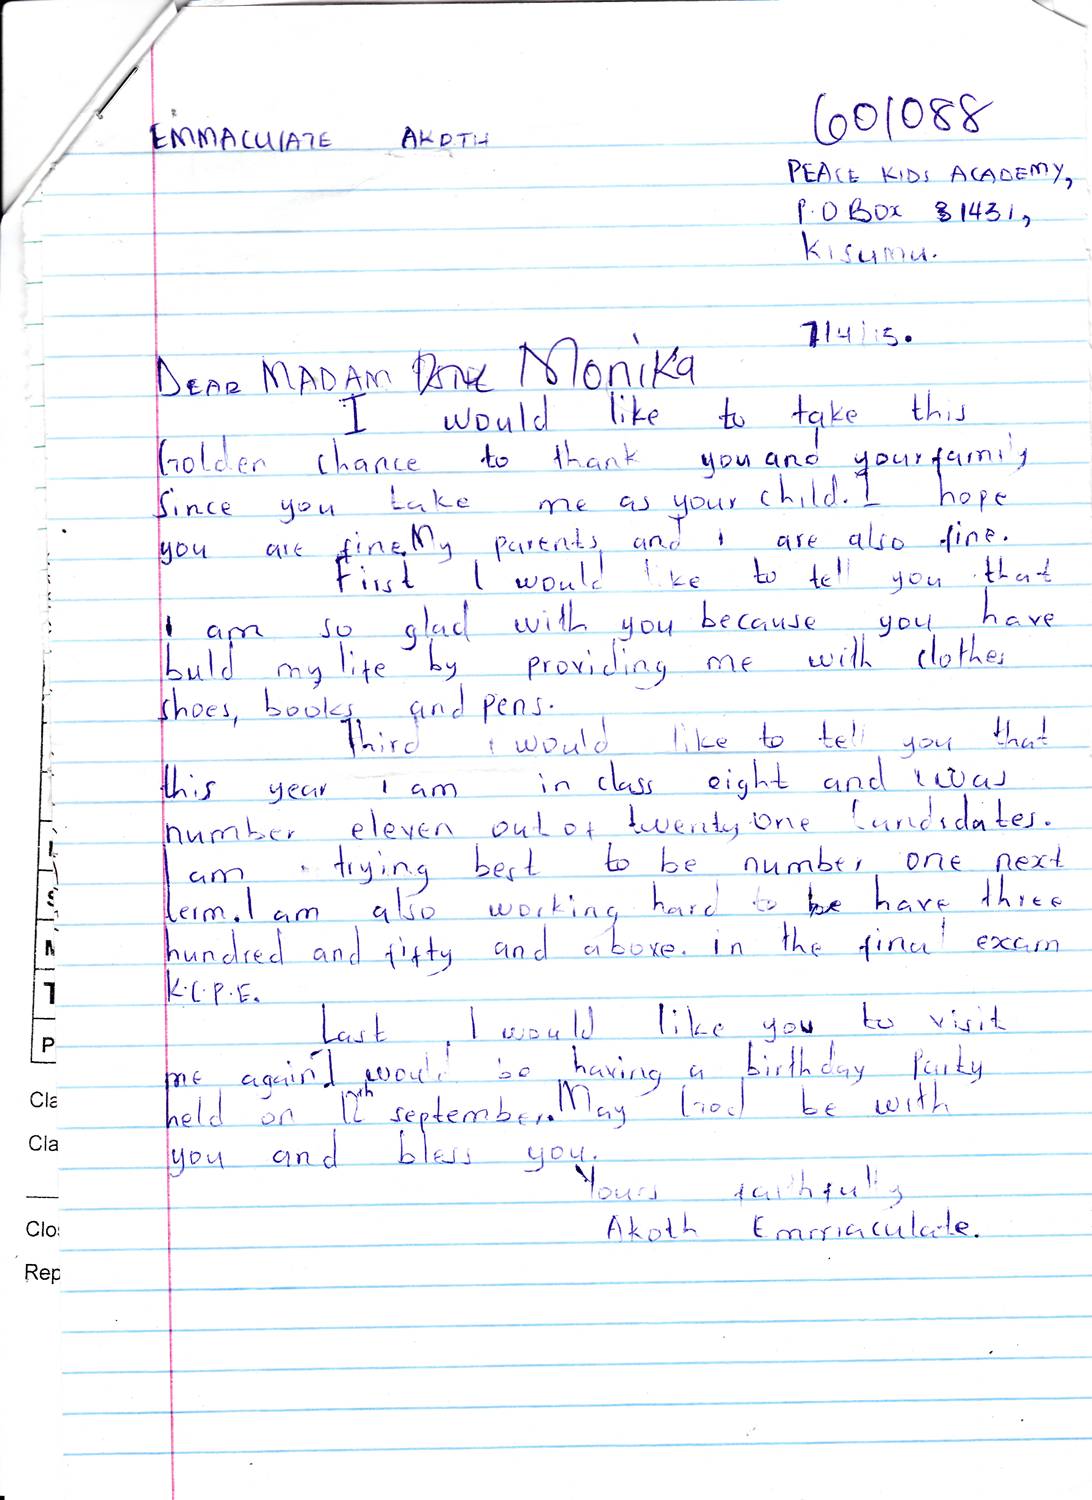 601088
EMMACULATE AKOTH
PEACE KIDS ACADEMY,
P.O BOX 31431,
Kisumu.
7/4/15.
DEAR MADAM Monika
I would like to take this
Golden chance to thank you and your family
Since you take me as your child. I hope
you are fine. My parents and I are also fine.
First I would like to tell you that
I am so glad with you because you have
buld my life by providing me with clothes
shoes, books and pens.
Third I would like to tell you that
this year I am in class eight and I was
number eleven out of twenty one Candidates.
I am trying best to be number one next
term. I am also working hard to be have three
hundred and fifty and above. in the final exam
K.C.P.E.
Last, I would like you to visit
me again I would be having a birthday Party
held on 12th september. May God be with
you and bless you.
Yours faithfully
Akoth Emmaculate.
L
S
M
T
P
Cla
Cla
Clo
Rep